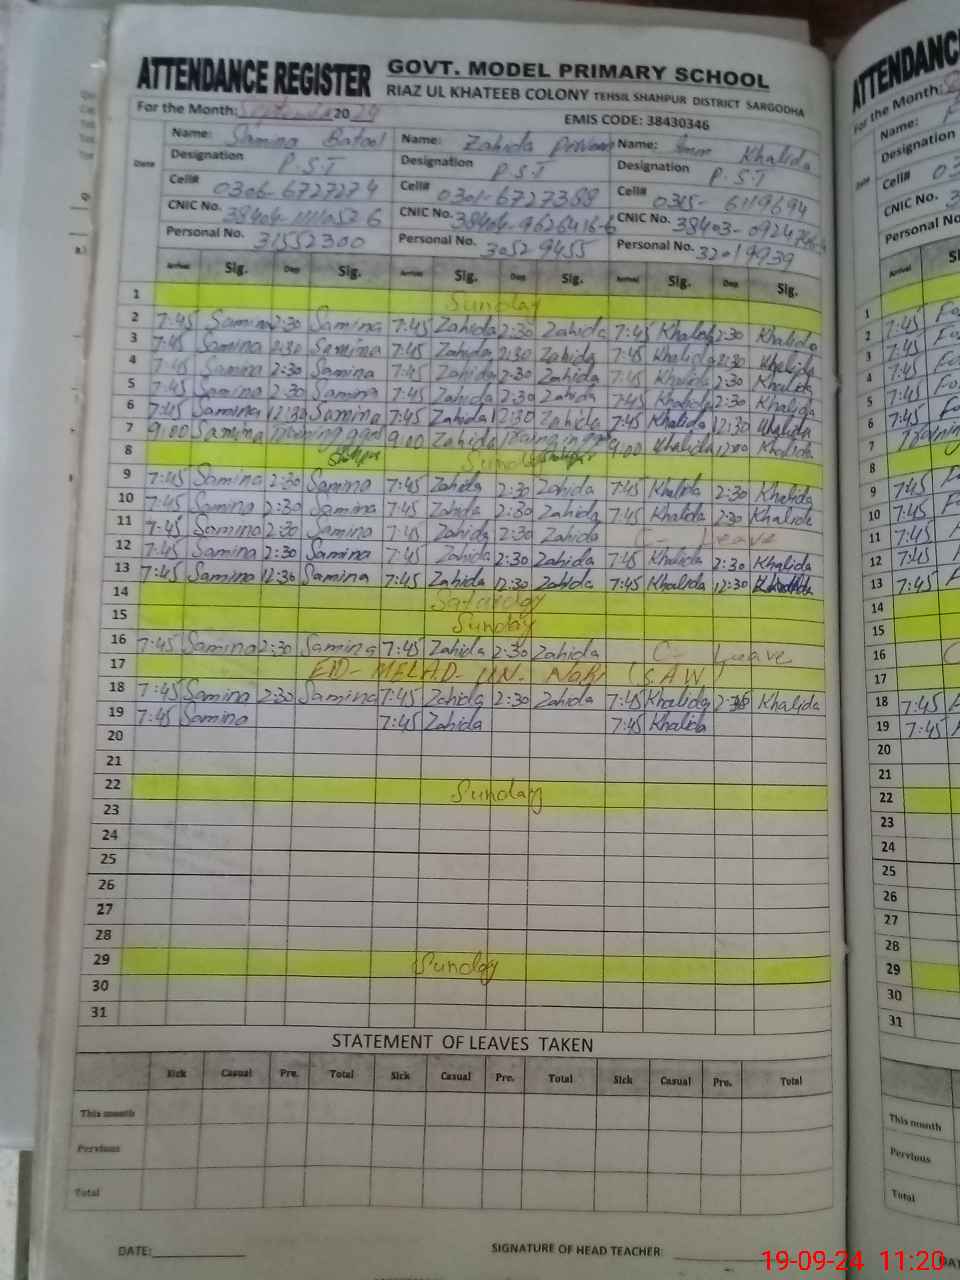 ATTENDANCE REGISTER
GOVT. MODEL PRIMARY SCHOOL
RIAZ UL KHATEEB COLONY TEHSIL SHAHPUR DISTRICT SARGODHA
For the Month: September 2024
EMIS CODE: 38430346
Date Name: Samina Batool Name: Zahida Perveen Name: Khalida
Designation P.S.T Designation P.S.T Designation P.S.T
Cell# 0306-6727274 Cell# 0301-6727388 Cell# 0315-6119694
CNIC No. CNIC No. 38404-9626416-6 CNIC No. 38403-0924
Personal No. 31552300 Personal No. 30529455 Personal No. 32019939
Arrival Sig. Dep Sig. Arrival Sig. Dep Sig. Arrival Sig. Dep Sig.
1 Sunday
2 7:45 Samina 2:30 Samina 7:45 Zahida 2:30 Zahida 7:45 Khalida 2:30 Khalida
3 7:45 Samina 2:30 Samina 7:45 Zahida 2:30 Zahida 7:45 Khalida 2:30 Khalida
4 7:45 Samina 2:30 Samina 7:45 Zahida 2:30 Zahida 7:45 Khalida 2:30 Khalida
5 7:45 Samina 2:30 Samina 7:45 Zahida 2:30 Zahida 7:45 Khalida 2:30 Khalida
6 7:45 Samina 12:30 Samina 7:45 Zahida 12:30 Zahida 7:45 Khalida 12:30 Khalida
7 9:00 Samina Training 9:00 Zahida Training 9:00 Khalida 12:00 Khalida
8 Shahpur Sunday Shahpur
9 7:45 Samina 2:30 Samina 7:45 Zahida 2:30 Zahida 7:45 Khalida 2:30 Khalida
10 7:45 Samina 2:30 Samina 7:45 Zahida 2:30 Zahida 7:45 Khalida 2:30 Khalida
11 7:45 Samina 2:30 Samina 7:45 Zahida 2:30 Zahida C- Leave
12 7:45 Samina 2:30 Samina 7:45 Zahida 2:30 Zahida 7:45 Khalida 2:30 Khalida
13 7:45 Samina 12:30 Samina 7:45 Zahida 12:30 Zahida 7:45 Khalida 12:30 Khalida
14 Saturday
15 Sunday
16 7:45 Samina 2:30 Samina 7:45 Zahida 2:30 Zahida C- Leave
17 EID-MELAD-UN-NABI (S.A.W)
18 7:45 Samina 2:30 Samina 7:45 Zahida 2:30 Zahida 7:45 Khalida 2:30 Khalida
19 7:45 Samina 7:45 Zahida 7:45 Khalida
20
21
22 Sunday
23
24
25
26
27
28
29 Sunday
30
31
STATEMENT OF LEAVES TAKEN
Sick Casual Pre. Total Sick Casual Pre. Total Sick Casual Pre. Total
This month
Pervious
Total
DATE:
SIGNATURE OF HEAD TEACHER
ATTENDANC
For the Month:
Name:
Designation
Cell# 03
CNIC No.
Personal No.
Date
Arrival
1
2 7:45
3 7:45
4 7:45
5 7:45
6 7:45
7
8
9 7:45
10 7:45
11 7:45
12 7:45
13 7:45
14
15
16
17
18 7:45
19 7:45
20
21
22
23
24
25
26
27
28
29
30
31
This month
Pervious
Total
19-09-24 11:20